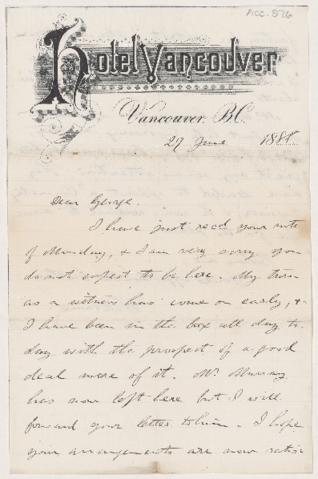 Acc. 576
Hotel Vancouver
Vancouver, B.C.
27 June 1888.
Dear George.
I have just recd your note
of Monday, & I am very sorry you
do not expect to be here. My turn
as a witness has come on early, &
I have been in the box all day to-
day with the prospect of a good
deal more of it. Mr. Murray
has now left here but I will
forward your letter to him. I hope
your arrangements are now